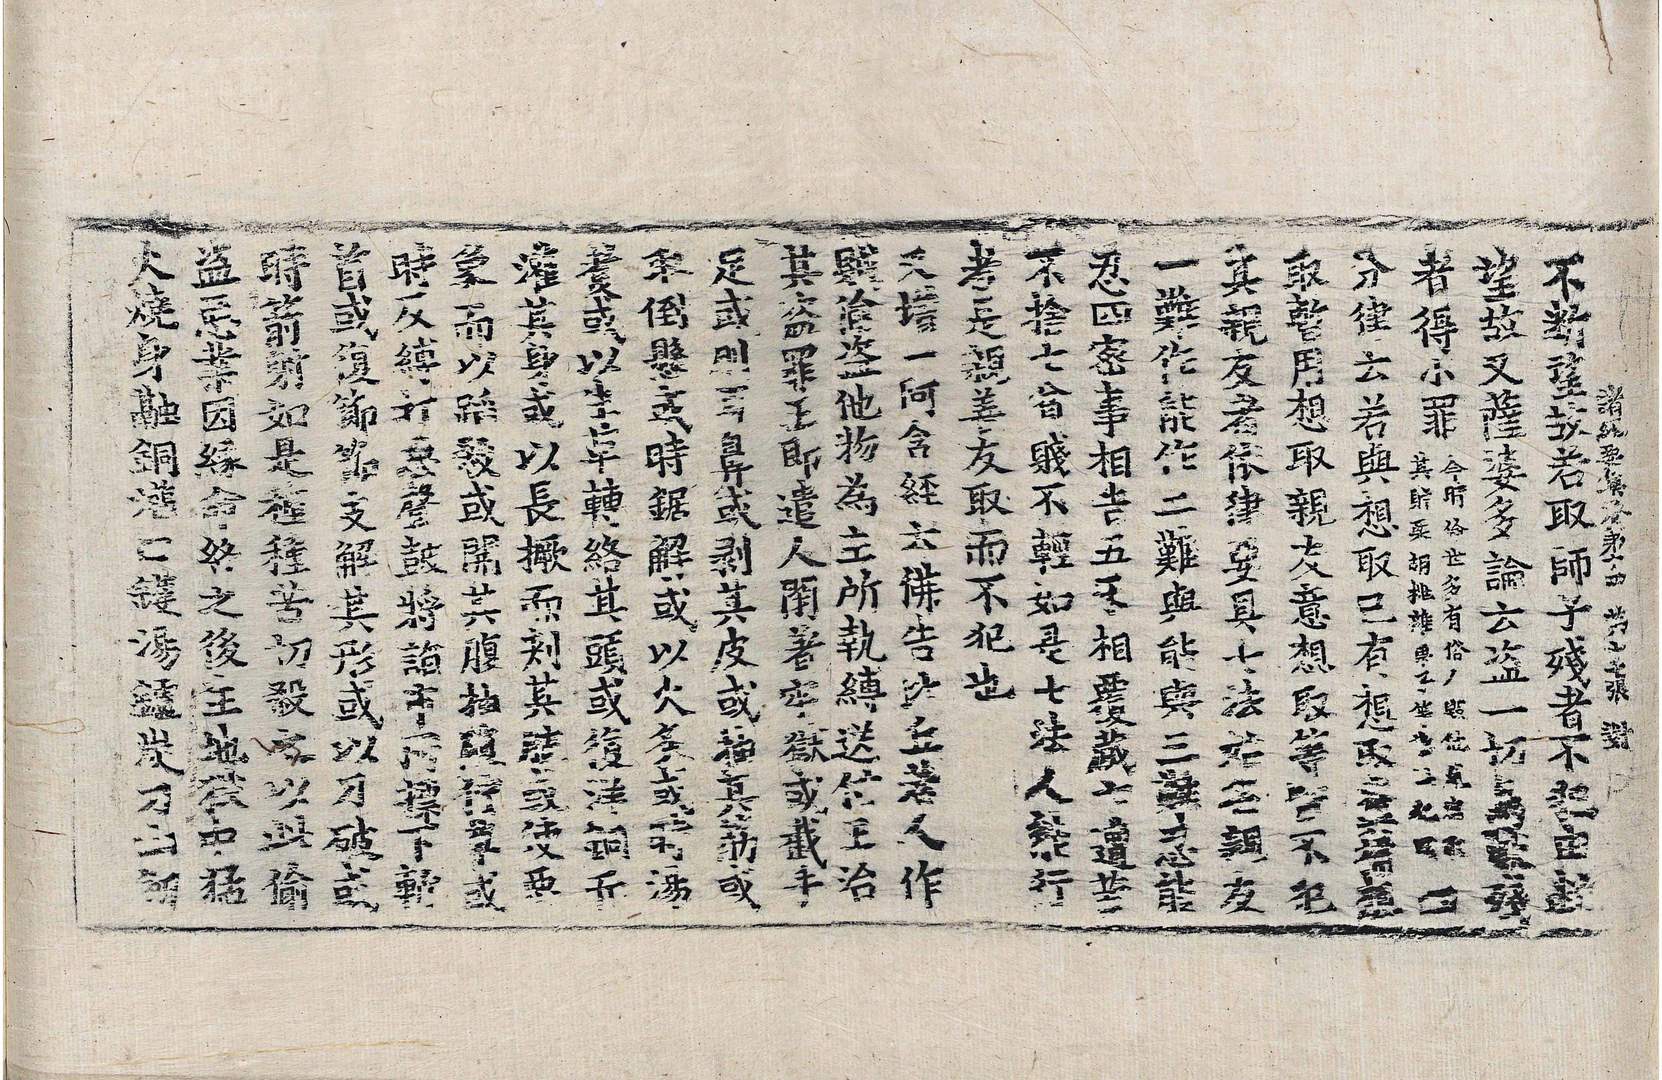 諸經要集卷第十四 第七張 對
不斷望故若取師子殘者不犯由斷
望故又薩婆多論云盜一切鳥獸殘
者得小罪 今時俗世多有俗人
其貯粟胡桃雜 四
分律云若與想取已有想取糞掃想
取暫用想取親友意想取等皆不犯
其親友者依律要具七法始名親友
一難作能作二難與能與三難忍能
忍四密事相告五互相覆藏六遭苦
不捨七貧賤不輕如是七法人能行
者是親善友取而不犯也
又增一阿含經云佛告比丘若人作
賊治盜他物為主所執縛送付王治
其盜罪王即遣人閉著牢獄或截手
足或刖耳鼻或剥其皮或抽其筋或
取倒懸或時鋸解或以火炙或
以生革轉絡其頭或復洋銅
灌其身或以長撅而刺其
象而以蹈殺或開其腹抽
時反縛打惡聲鼓將詣市所標下
首或復節節支解其形或以刀破或
時箭射如是種種苦切殺害以此偷
盜惡業因緣命終之後生地獄中猛
火燒身融銅灌口鑊湯鑪炭刀山劍